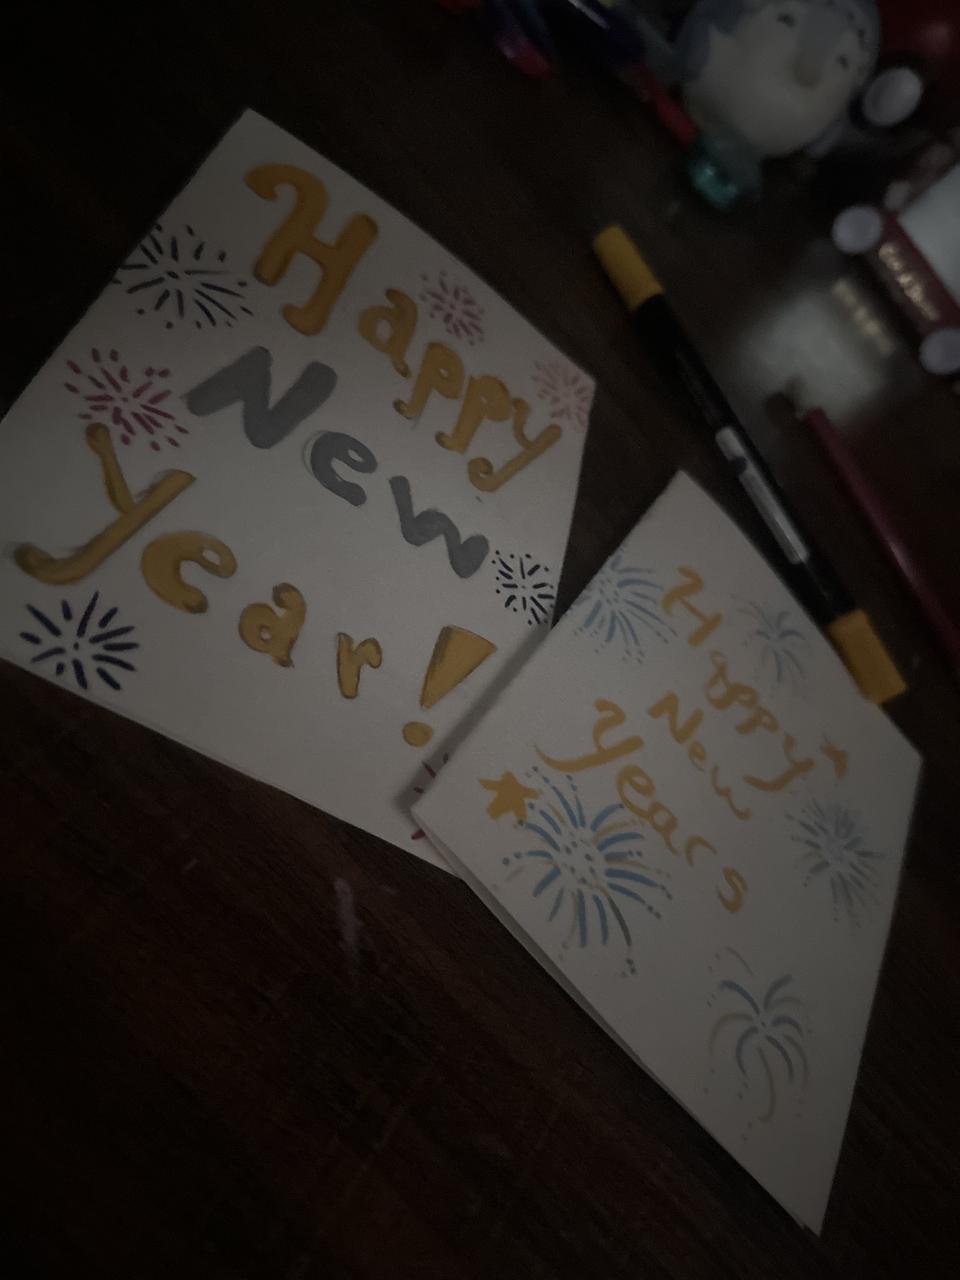 Happy
New
Year!
Happy
New
Years